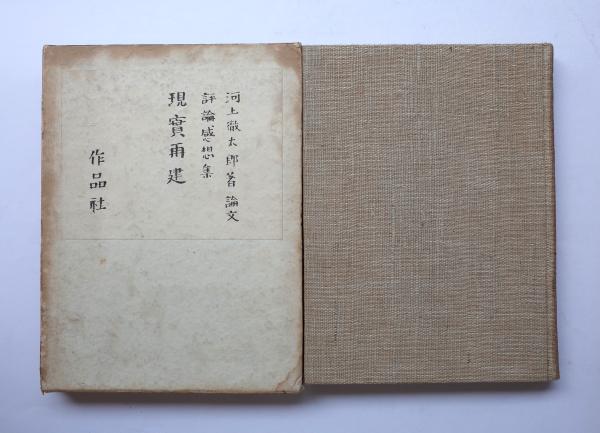 河上徹太郎著論文
評論感想集
現實再建
作品社